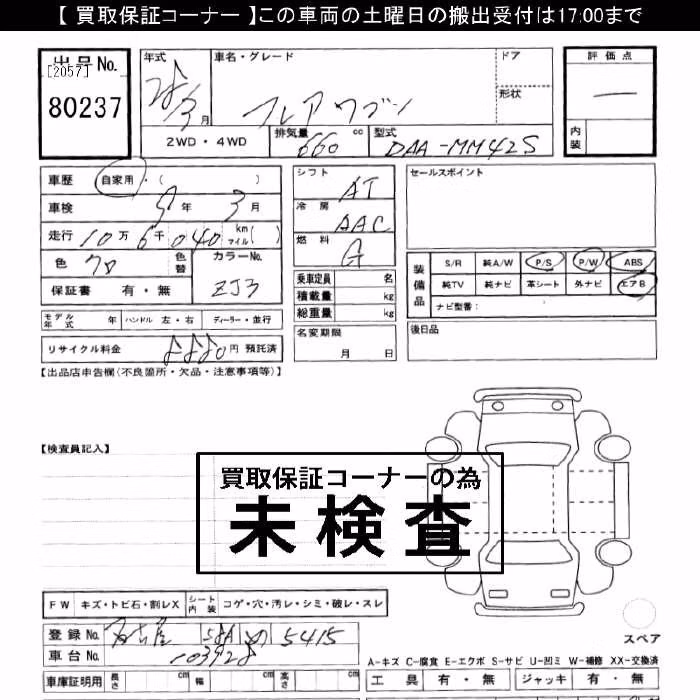 【 買取保証コーナー 】この車両の土曜日の搬出受付は17:00まで
出品No.
[2057]
80237
年式
28/3月
車名・グレード
フレアワゴン
ドア
形状
2WD・4WD
排気量 660 cc
型式 DAA-MM42S
評価点
内装
車歴 自家用・( )
車検 9年3月
走行 10万6千040 km マイル( )
色 クロ
色替
カラーNo.
ZJ3
保証書 有・無
モデル年式 年 ハンドル 左・右 ディーラー・並行
リサイクル料金 8880円 預託済
シフト AT
冷房 AAC
燃料 G
乗車定員 名
積載量 kg
総重量 kg
名変期限
月 日
セールスポイント
装備品
S/R 純A/W P/S P/W ABS
純TV 純ナビ 革シート 外ナビ エアB
ナビ型番:
後日品
【出品店申告欄(不良箇所・欠品・注意事項等)】
【検査員記入】
買取保証コーナーの為
未検査
FW キズ・トビ石・割レX シート内装 コゲ・穴・汚レ・シミ・破レ・スレ
登録No. 名古屋 581 5415
車台No. 103928
車庫証明用 長さ cm 幅 cm 高さ cm
スペア
A-キズ C-腐食 E-エクボ S-サビ U-凹ミ W-補修 XX-交換済
工具 有・無 ジャッキ 有・無